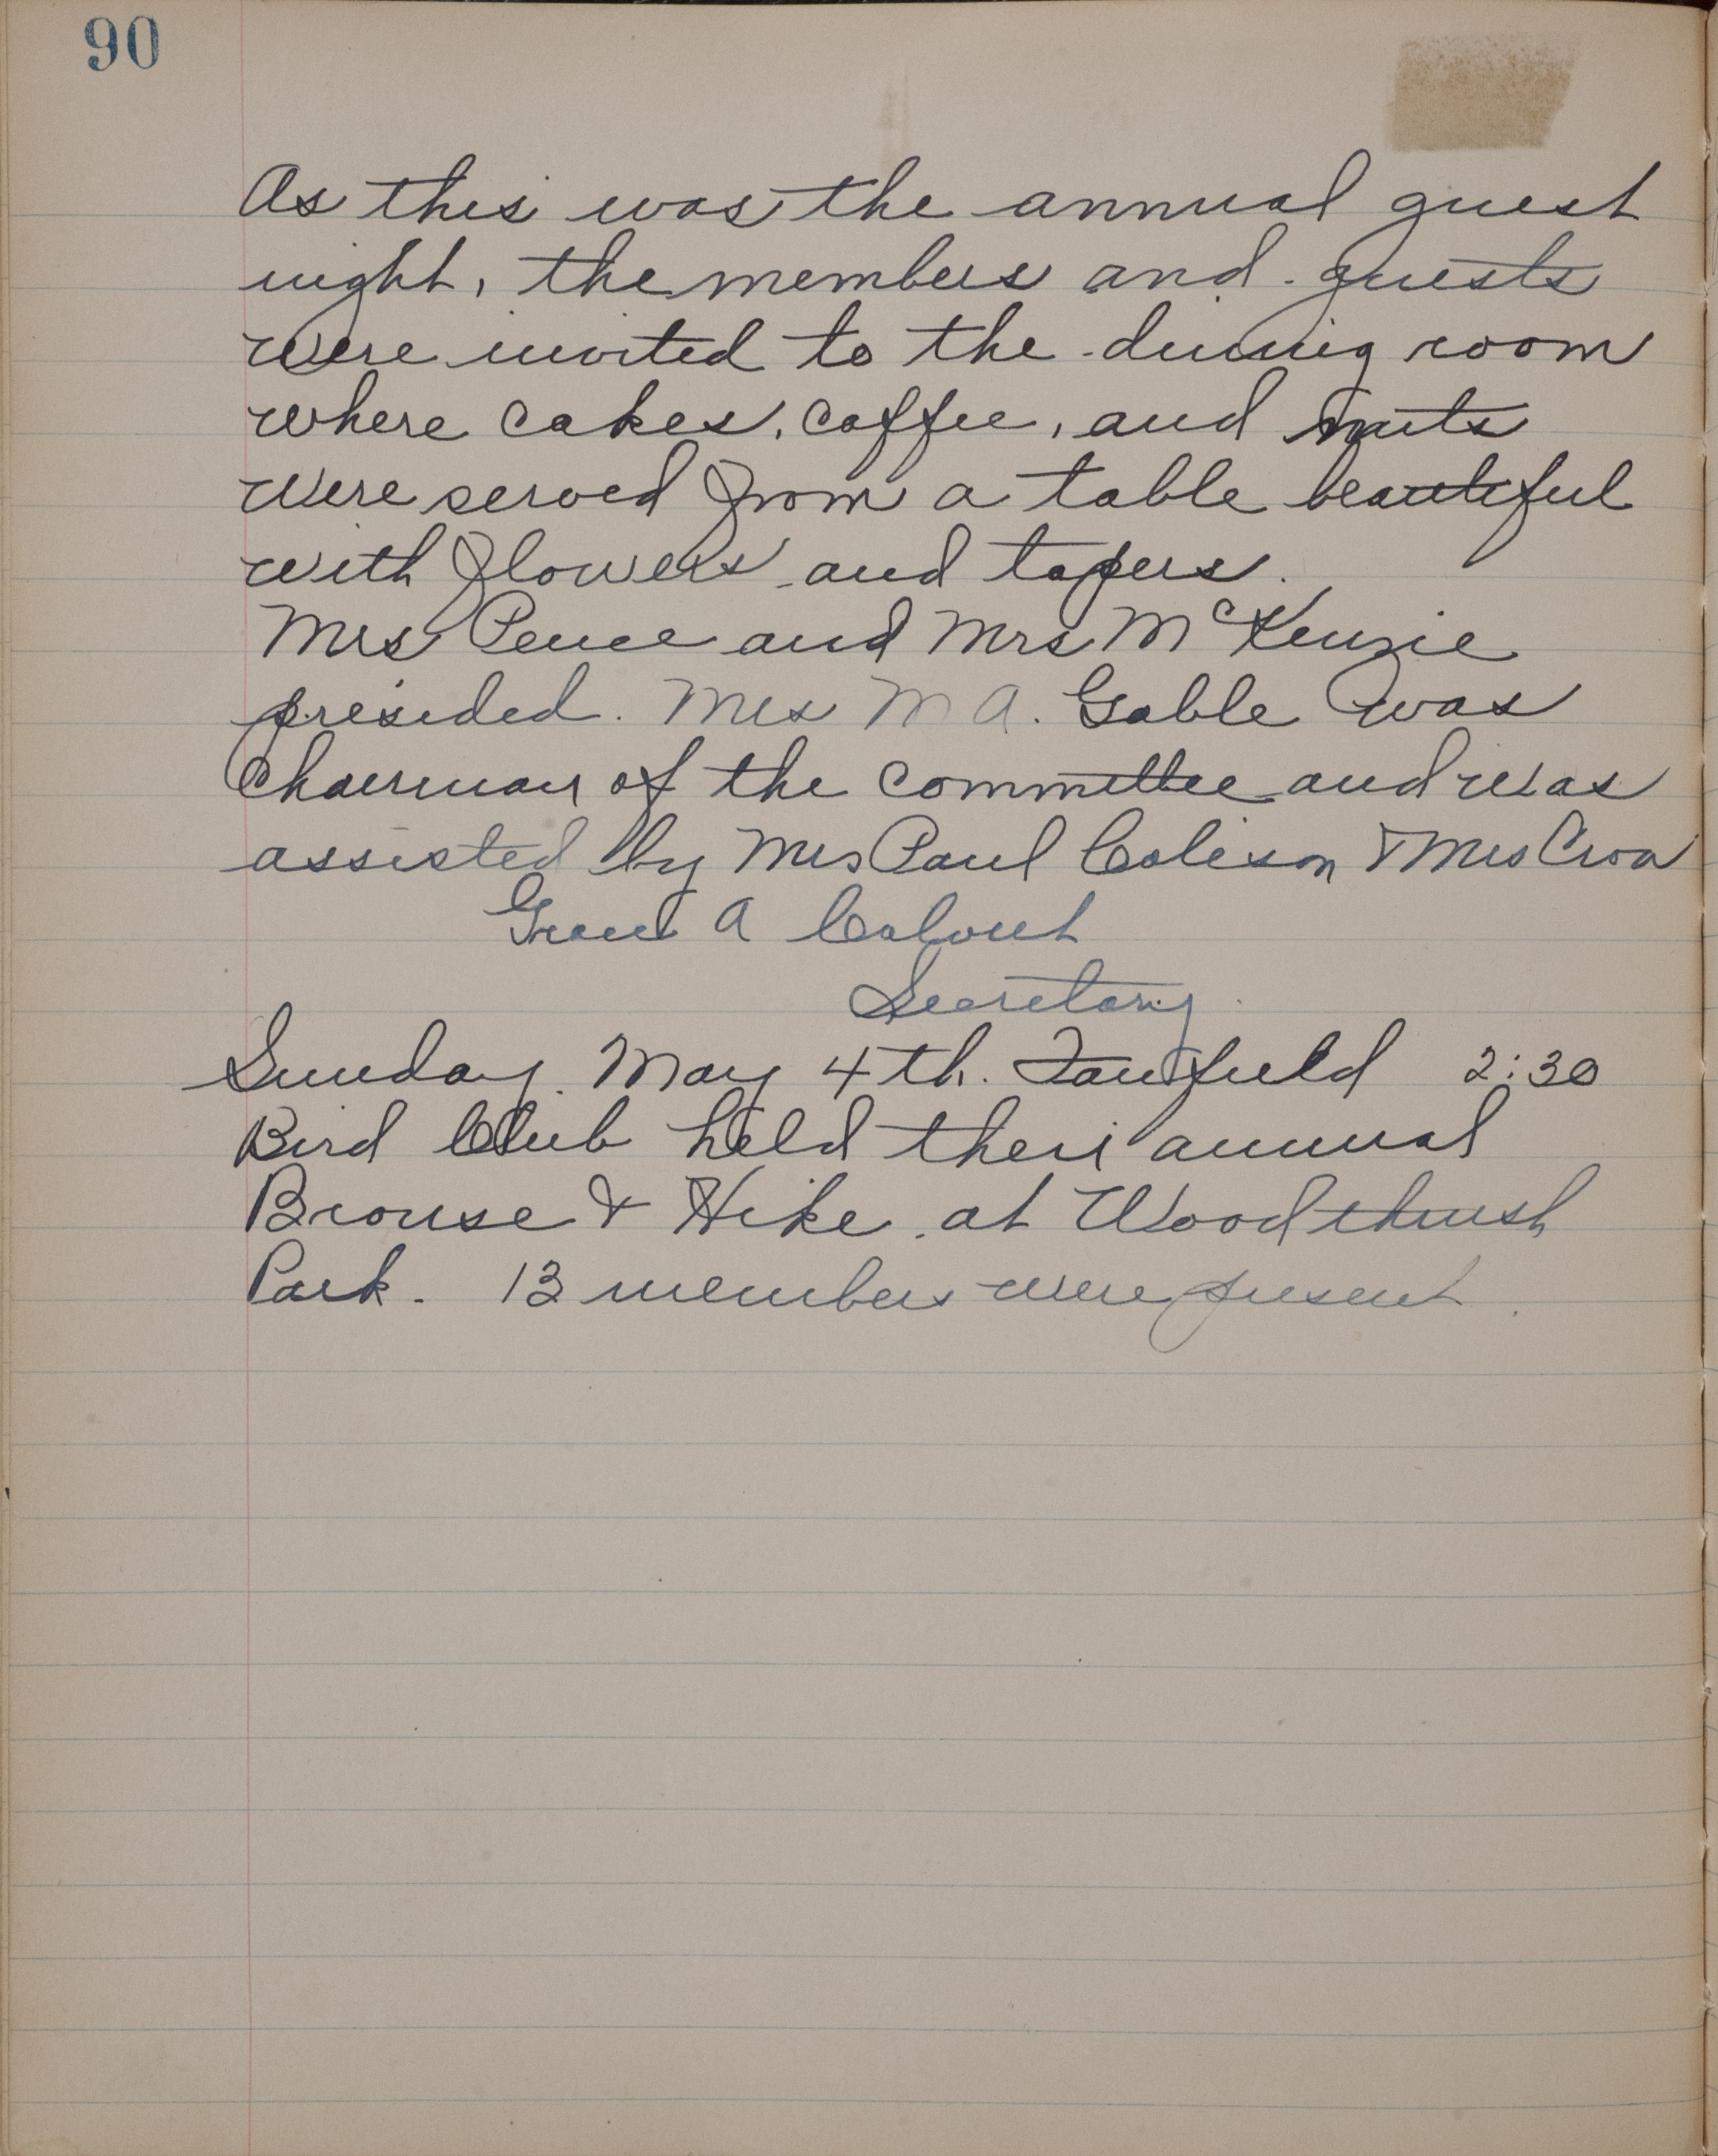 90
As this was the annual guest
night, the members and guests
were invited to the dining room
where cakes, coffee, and nuts
were served from a table beautiful
with flowers and tapers.
Mrs Pence and Mrs McKenzie
presided. Mrs M A. Gable was
Chairman of the committee and was
assisted by Mrs Paul Colison & Mrs
Grace A Calvert
Secretary.
Sunday. May 4th. Fairfield 2:30
Bird Club held their annual
Brouse & Hike at Woodthrush
Park. 13 members were present.